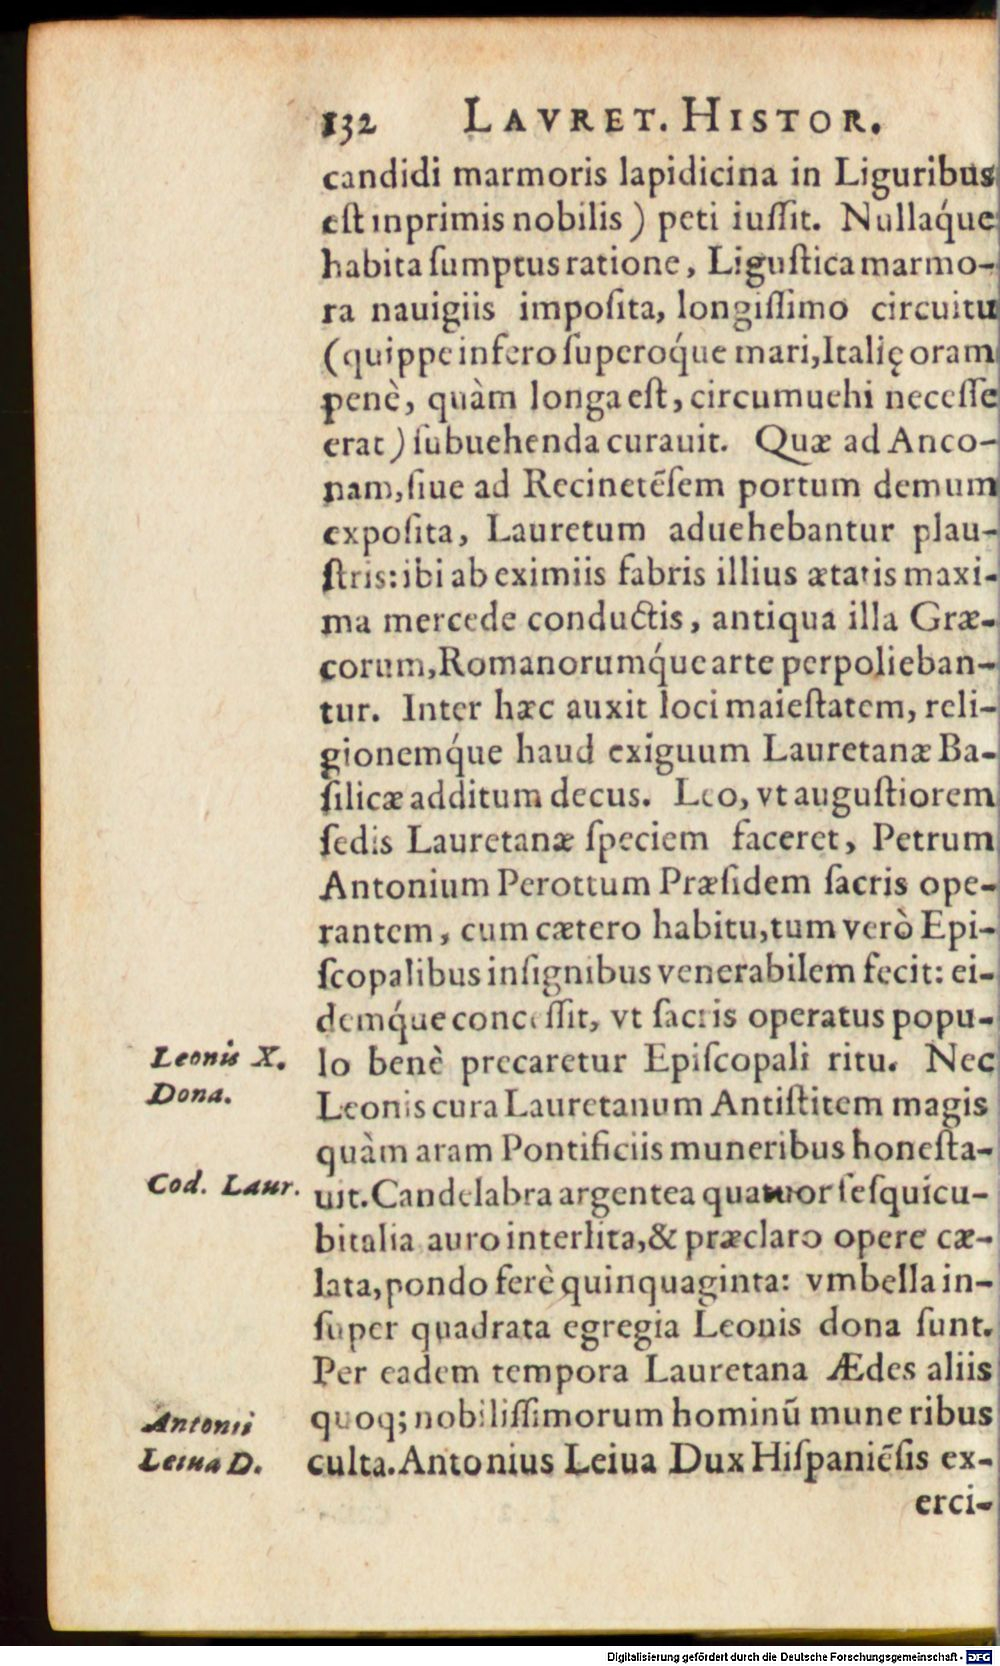 132 LAVRET. HISTOR.
candidi marmoris lapidicina in Liguribus
eſt inprimis nobilis) peti iuſſit. Nullaq́ue
habita ſumptus ratione, Liguſtica marmo-
ra nauigiis impoſita, longiſſimo circuitu
(quippe infero ſuperoq́ue mari, Italię oram
penè, quàm longa eſt, circumuehi neceſſe
erat) ſubuehenda curauit. Quæ ad Anco-
nam, ſiue ad Recinetẽſem portum demum
expoſita, Lauretum aduehebantur plau-
ſtris: ibi ab eximiis fabris illius ætatis maxi-
ma mercede conductis, antiqua illa Græ-
corum, Romanorumq́ue arte perpolieban-
tur. Inter hæc auxit loci maieſtatem, reli-
gionemq́ue haud exiguum Lauretanæ Ba-
ſilicæ additum decus. Leo, vt auguſtiorem
ſedis Lauretanæ ſpeciem faceret, Petrum
Antonium Perottum Præſidem ſacris ope-
rantem, cum cætero habitu, tum verò Epi-
ſcopalibus inſignibus venerabilem fecit: ei-
demq́ue conceſſit, vt ſacris operatus popu-
Leonis X.
Dona.
lo benè precaretur Epiſcopali ritu. Nec
Leonis cura Lauretanum Antiſtitem magis
quàm aram Pontificiis muneribus honeſta-
Cod. Laur.
uit. Candelabra argentea quatuor ſeſquicu-
bitalia auro interlita, & præclaro opere cæ-
lata, pondo ferè quinquaginta: vmbella in-
ſuper quadrata egregia Leonis dona ſunt.
Per eadem tempora Lauretana Ædes aliis
Antonii
Leiua D.
quoq; nobiliſſimorum hominũ muneribus
culta. Antonius Leiua Dux Hiſpaniẽſis ex-
erci-
Digitalisierung gefördert durch die Deutsche Forschungsgemeinschaft - DFG